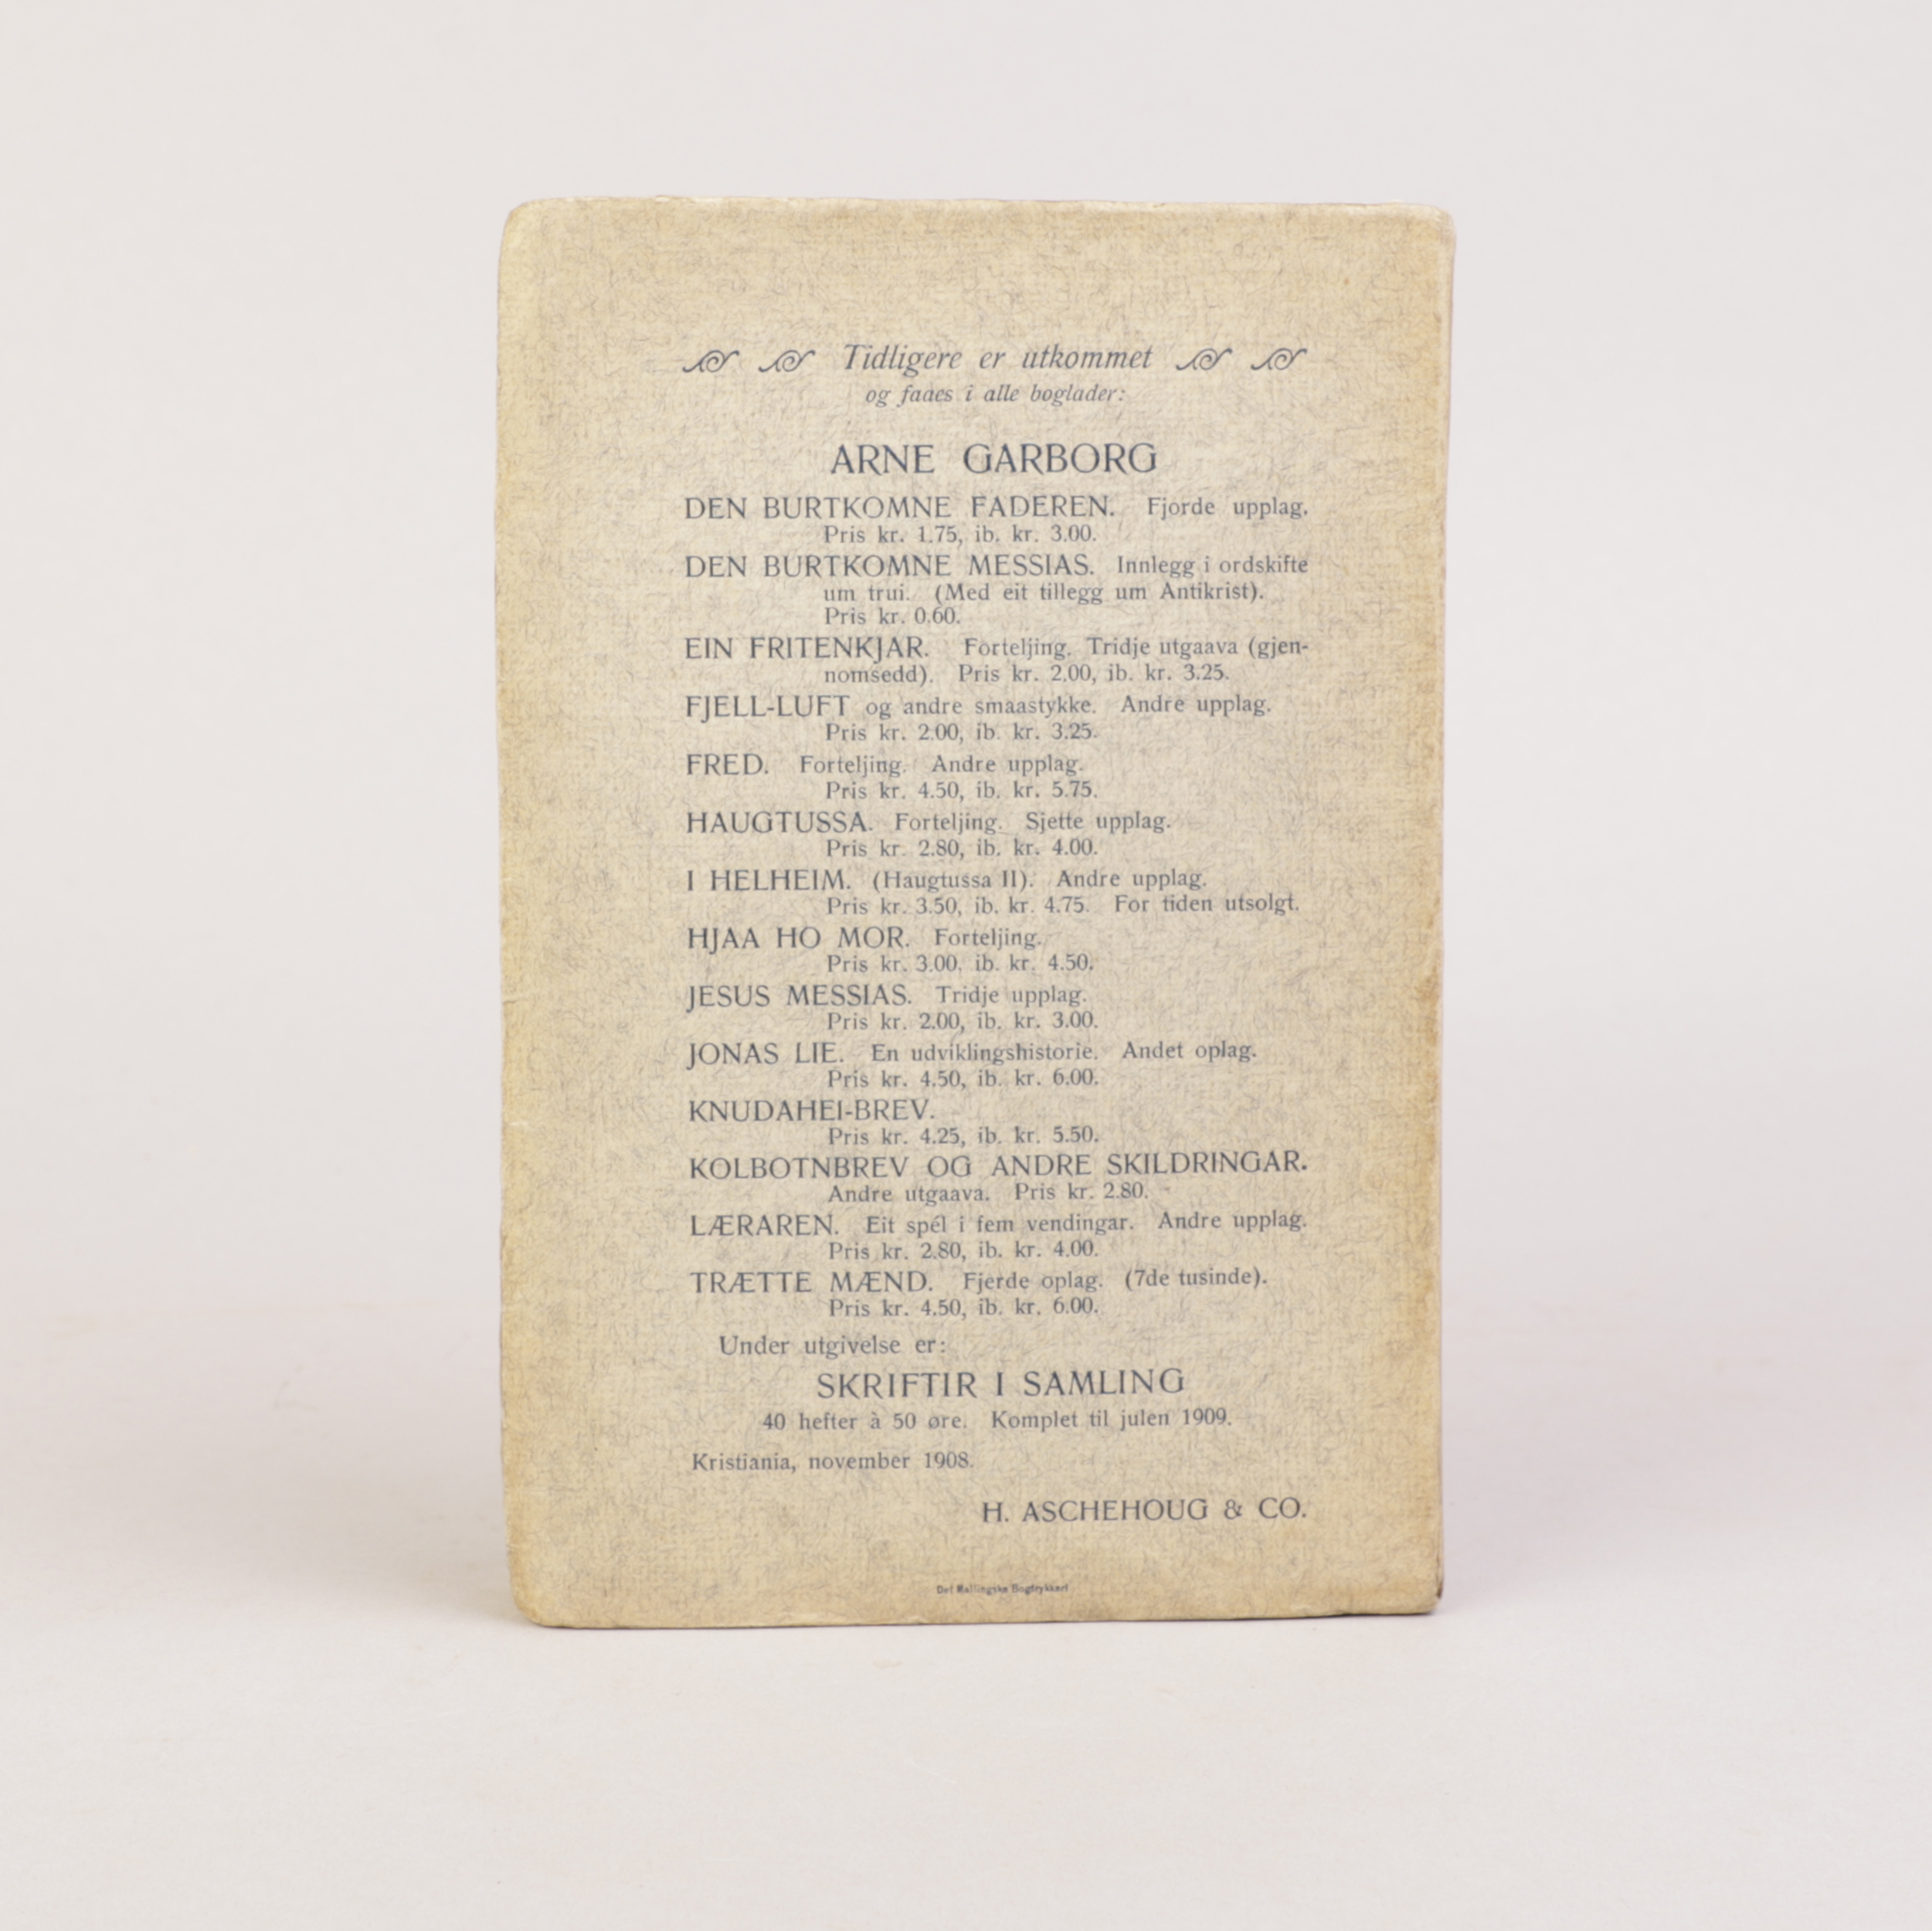 Tidligere er utkommet
og faaes i alle boglader:
ARNE GARBORG
DEN BURTKOMNE FADEREN. Fjorde upplag.
Pris kr. 1.75, ib. kr. 3.00.
DEN BURTKOMNE MESSIAS. Innlegg i ordskifte
um trui. (Med eit tillegg um Antikrist).
Pris kr. 0.60.
EIN FRITENKJAR. Forteljing. Tridje utgaava (gjen-
nomsedd). Pris kr. 2.00, ib. kr. 3.25.
FJELL-LUFT og andre smaastykke. Andre upplag.
Pris kr. 2.00, ib. kr. 3.25.
FRED. Forteljing. Andre upplag.
Pris kr. 4.50, ib. kr. 5.75.
HAUGTUSSA. Forteljing. Sjette upplag.
Pris kr. 2.80, ib. kr. 4.00.
I HELHEIM. (Haugtussa II). Andre upplag.
Pris kr. 3.50, ib. kr. 4.75. For tiden utsolgt.
HJAA HO MOR. Forteljing.
Pris kr. 3.00, ib. kr. 4.50.
JESUS MESSIAS. Tridje upplag.
Pris kr. 2.00, ib. kr. 3.00.
JONAS LIE. En udviklingshistorie. Andet oplag.
Pris kr. 4.50, ib. kr. 6.00.
KNUDAHEI-BREV.
Pris kr. 4.25, ib. kr. 5.50.
KOLBOTNBREV OG ANDRE SKILDRINGAR.
Andre utgaava. Pris kr. 2.80.
LÆRAREN. Eit spél i fem vendingar. Andre upplag.
Pris kr. 2.80, ib. kr. 4.00.
TRÆTTE MÆND. Fjerde oplag. (7de tusinde).
Pris kr. 4.50, ib. kr. 6.00.
Under utgivelse er:
SKRIFTIR I SAMLING
40 hefter à 50 øre. Komplet til julen 1909.
Kristiania, november 1908.
H. ASCHEHOUG & CO.
Det Mallingske Bogtrykkeri